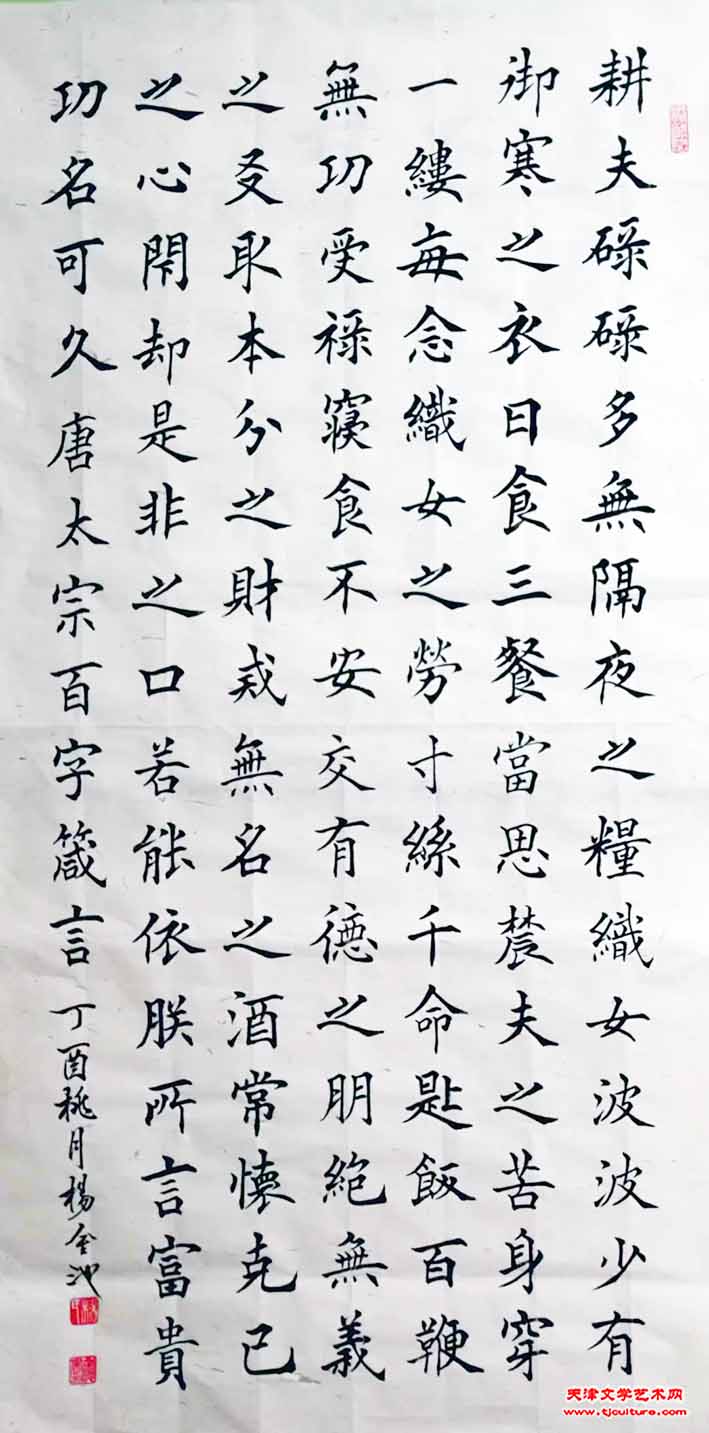 耕夫碌碌多無隔夜之糧織女波波少有
御寒之衣日食三餐當思農夫之苦身穿
一縷每念織女之勞寸絲千命匙飯百鞭
無功受祿寢食不安交有德之朋絕無義
之友取本分之財戒無名之酒常懷克己
之心閉却是非之口若能依朕所言富貴
功名可久唐太宗百字箴言丁酉桃月楊金池
天津文学艺术网
www.tjculture.com